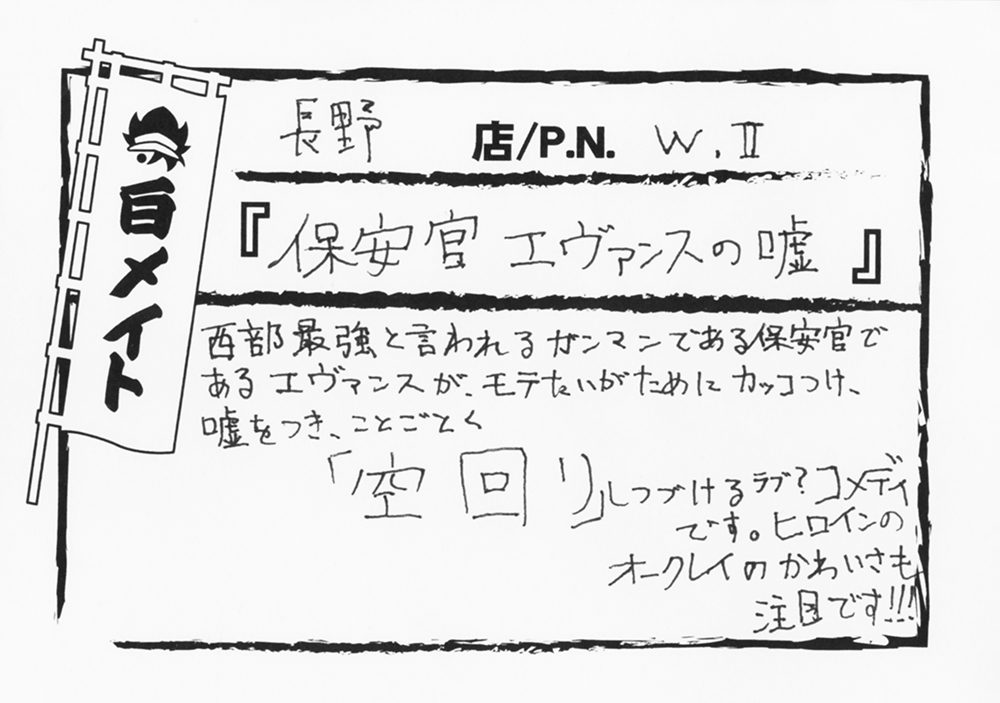 長野 店/P.N. W.Ⅱ
『保安官 エヴァンスの嘘』
百メイト
西部最強と言われるガンマンである保安官で
あるエヴァンスが、モテたいがためにカッコつけ、
嘘をつき、ことごとく
「空回り」しつづけるラブ?コメディ
です。ヒロインの
オークレイのかわいさも
注目です!!!